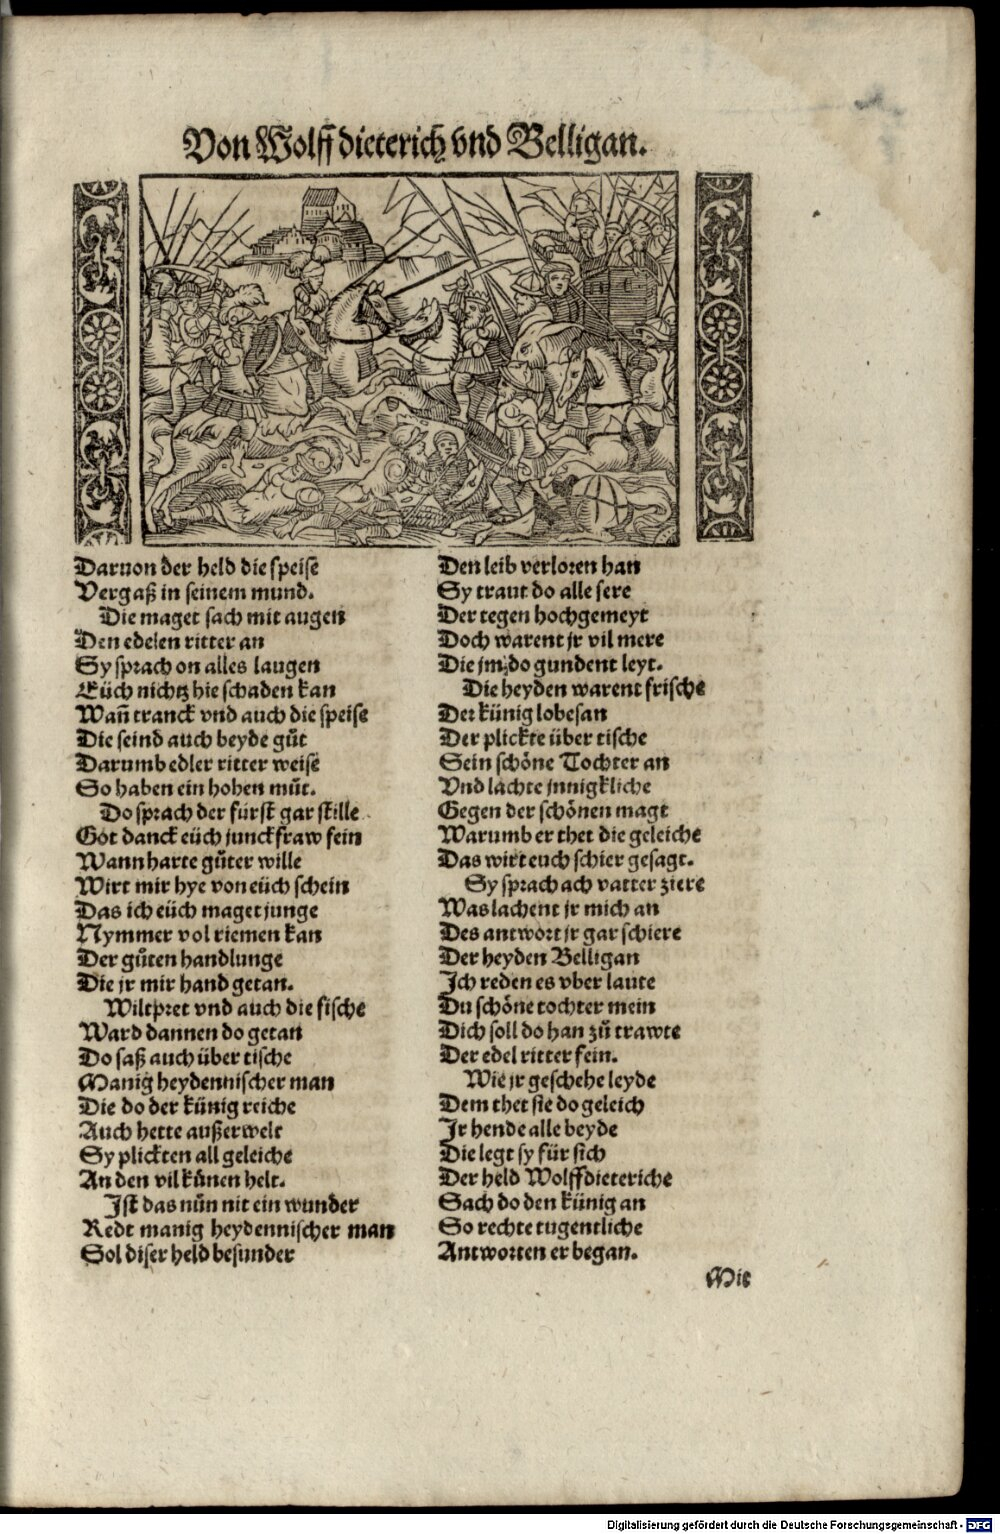 Von Wolffdieterich vnd Belligan.
Daruon der held die speise
Vergaß in seinem mund.
Die maget sach mit augen
Den edelen ritter an
Sy sprach on alles laugen
Eüch nichtz hie schaden kan
Wañ tranck vnd auch die speise
Die seind auch beyde gůt
Darumb edler ritter weise
So haben ein hohen můt.
Do sprach der fürst gar stille
Got danck eüch junckfraw fein
Wann harte gůter wille
Wirt mir hye von eüch schein
Das ich eüch maget junge
Nymmer vol riemen kan
Der gůten handlunge
Die jr mir hand getan.
Wiltpret vnd auch die fische
Ward dannen do getan
Do saß auch über tische
Manig heydennischer man
Die do der künig reiche
Auch hette außerwelt
Sy plickten all geleiche
An den vil kůnen helt.
Ist das nůn nit ein wunder
Redt manig heydennischer man
Sol diser held besunder
Den leib verloren han
Sy traut do alle sere
Der tegen hochgemeyt
Doch warent jr vil mere
Die jm do gundent leyt.
Die heyden warent frische
Der künig lobesan
Der plickte über tische
Sein schöne Tochter an
Vnd lachte jnnigkliche
Gegen der schönen magt
Warumb er thet die geleiche
Das wirt euch schier gesagt.
Sy sprach ach vatter ziere
Was lachent jr mich an
Des antwort jr gar schiere
Der heyden Belligan
Ich reden es vber laute
Du schöne tochter mein
Dich soll do han zů trawte
Der edel ritter fein.
Wie jr geschehe leyde
Dem thet sie do geleich
Ir hende alle beyde
Die legt sy für sich
Der held Wolffdieteriche
Sach do den künig an
So rechte tugentliche
Antworten er began.
Mit
Digitalisierung gefördert durch die Deutsche Forschungsgemeinschaft - DFG